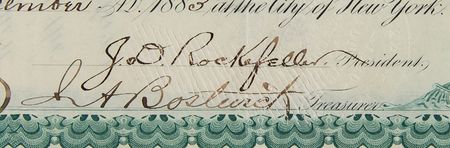 ember A.D. 1883 at the City of New York.
J.D. Rockefeller President,
J A Bostwick Treasurer